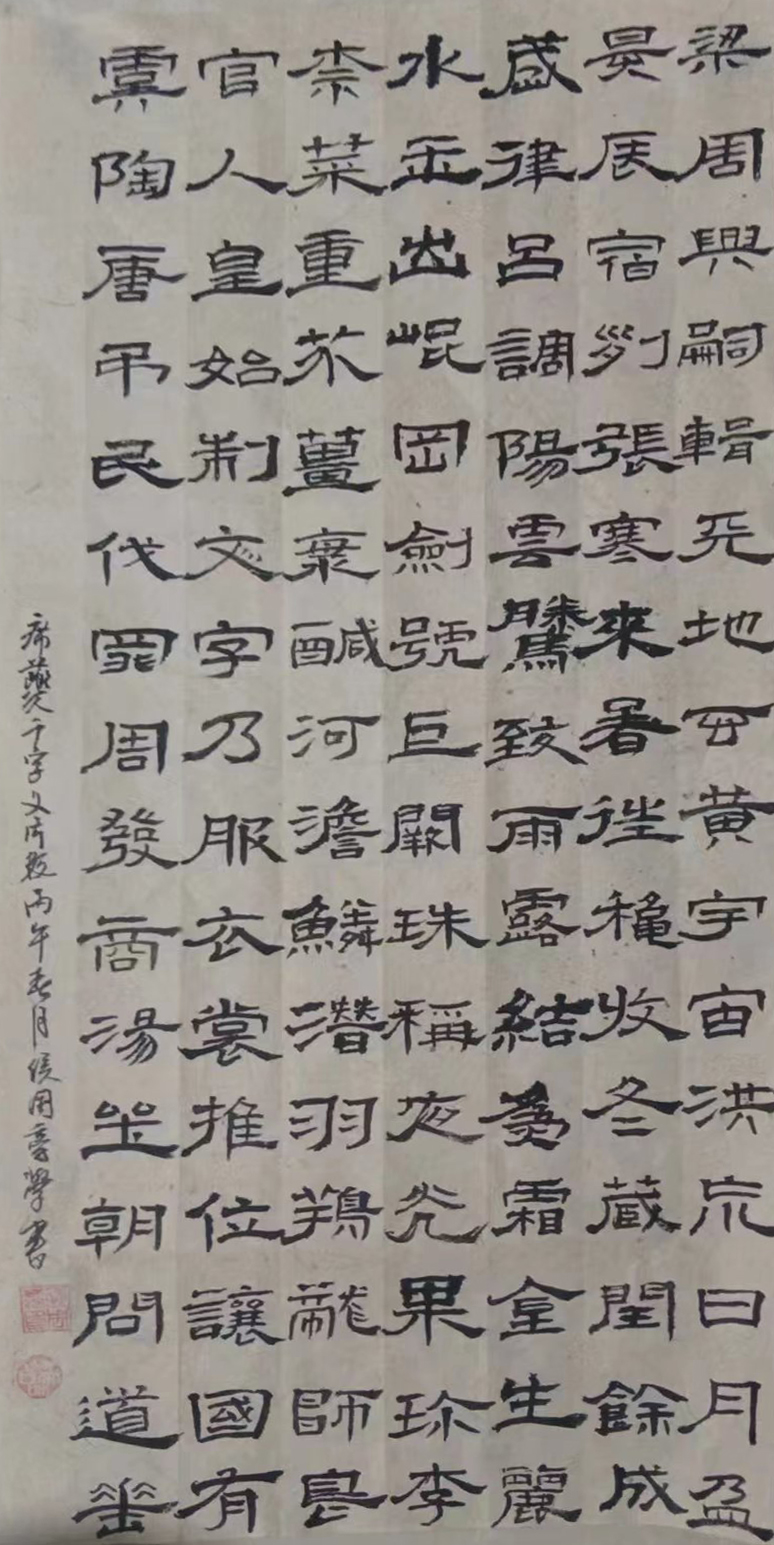 梁周興嗣輯天地玄黃宇宙洪荒日月盈
昃辰宿列張寒來暑往穐收冬藏閏餘成
歲律呂調陽雲騰致雨露結為霜金生麗
水玉出崐岡劍號巨闕珠稱夜光果珍李
柰菜重芥薑海醎河澹鱗潛羽翔龍師火帝鳥
官人皇始制文字乃服衣裳推位讓國有
虞陶唐弔民伐罪周發商湯坐朝問道垂
千字文 丙午春月 學書